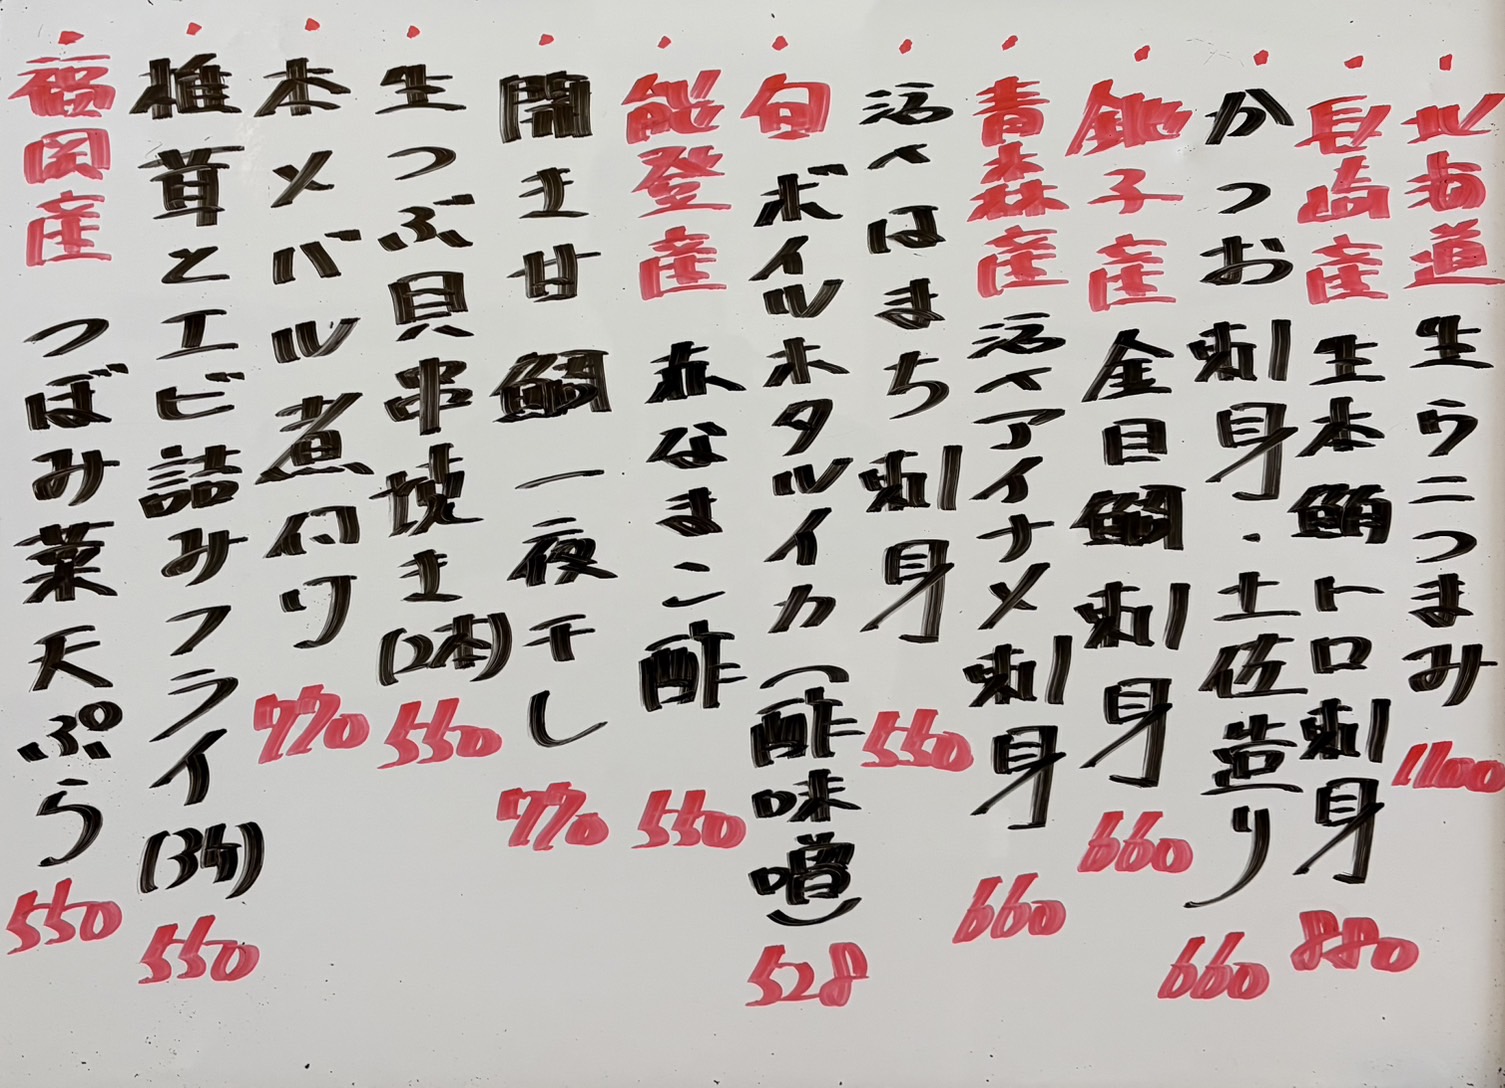 ・北海道 生ウニつまみ 1100
・長崎産 生本鮪トロ刺身 880
・かつお刺身・土佐造り 660
・銚子産 金目鯛刺身 660
・青森産 活〆アイナメ刺身 660
・活〆はまち刺身 550
・旬 ボイルホタルイカ(酢味噌) 528
・能登産 赤なまこ酢 550
・開き甘鯛 一夜干し 770
・生つぶ貝串焼き(2本) 550
・本メバル煮付け 770
・椎茸とエビ詰みフライ 550
・福岡産 つぼみ菜天ぷら 550